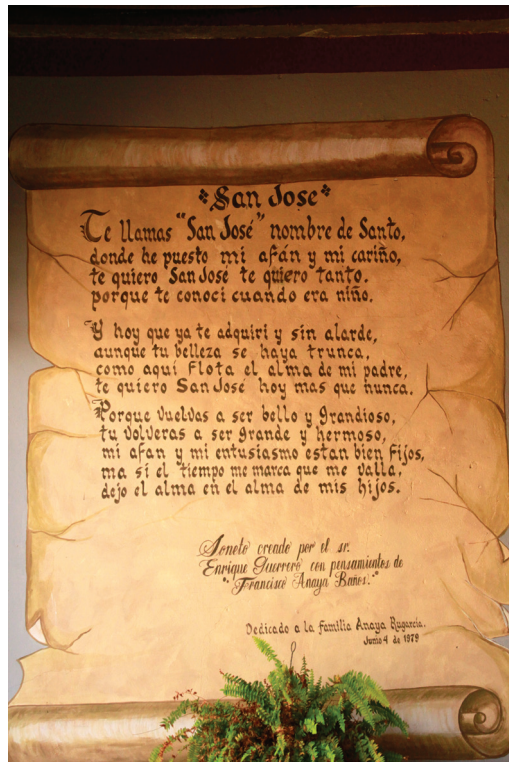 San Jose
Te llamas "San José" nombre de Santo,
donde he puesto mi afán y mi cariño,
te quiero San José te quiero tanto.
porque te conoci cuando era niño.
Y hoy que ya te adquiri y sin alarde,
aunque tu belleza se haya trunca,
como aquí flota el alma de mi padre,
te quiero San José hoy mas que nunca.
Porque vuelvas a ser bello y grandioso,
tu volveras a ser grande y hermoso,
mi afan y mi entusiasmo estan bien fijos,
ma si el tiempo me marca que me valla,
dejo el alma en el alma de mis hijos.
Soneto creado por el sr.
Enrique Guerrero con pensamientos de
"Francisco Anaya Baños."
Dedicado a la familia Anaya Rugarcia.
Junio 4 de 1979